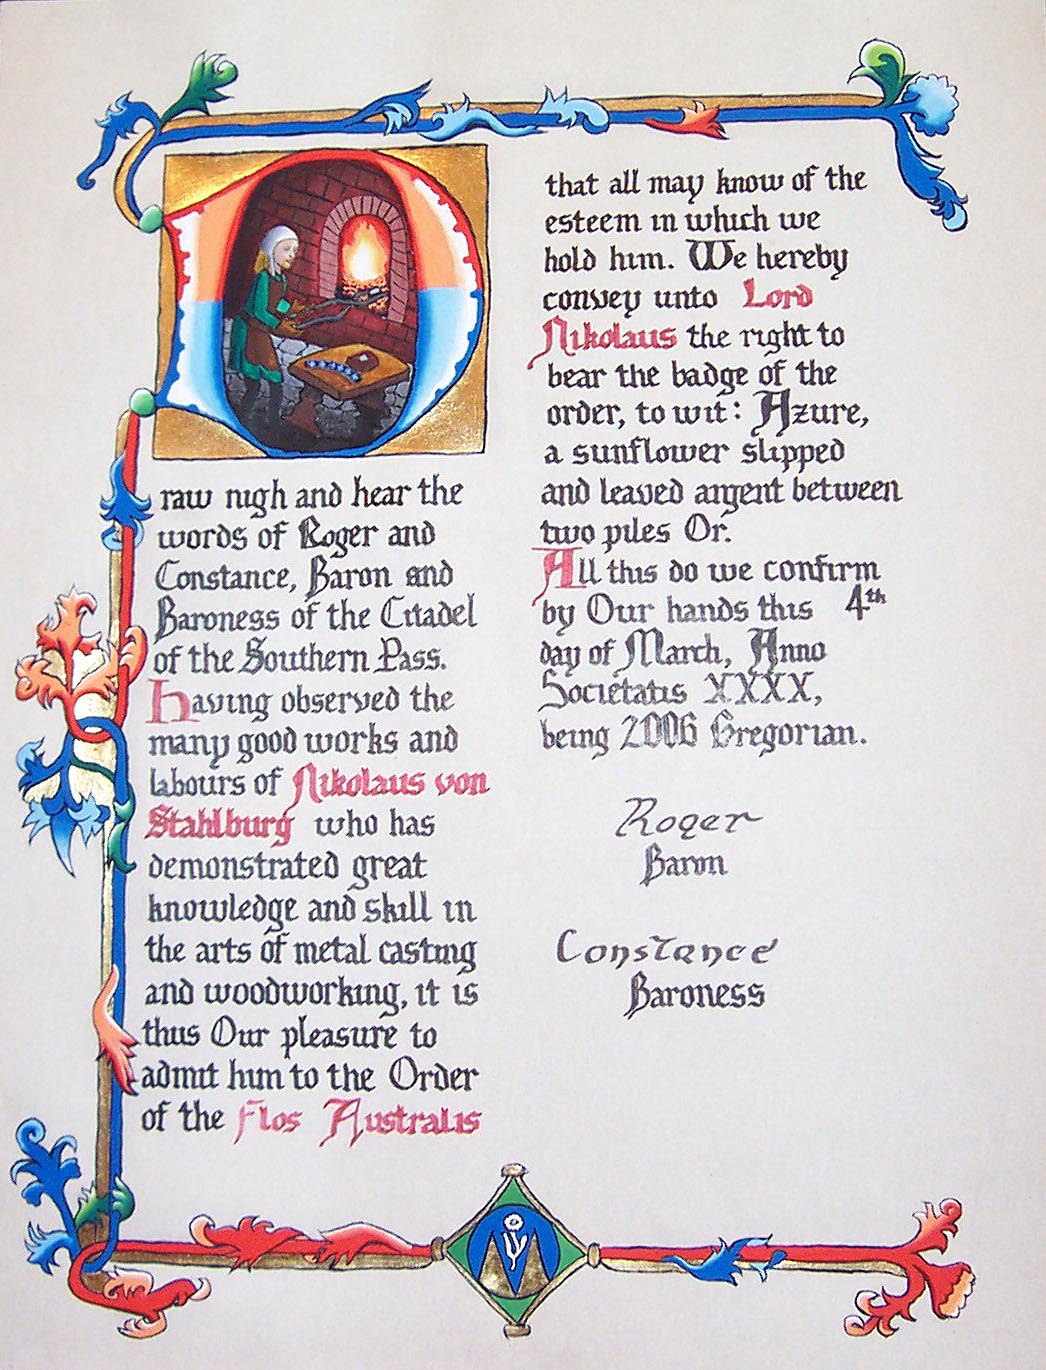 Draw nigh and hear the
words of Roger and
Constance, Baron and
Baroness of the Citadel
of the Southern Pass.
Having observed the
many good works and
labours of Nikolaus von
Stahlburg who has
demonstrated great
knowledge and skill in
the arts of metal casting
and woodworking, it is
thus Our pleasure to
admit him to the Order
of the Flos Australis
that all may know of the
esteem in which we
hold him. We hereby
convey unto Lord
Nikolaus the right to
bear the badge of the
order, to wit: Azure,
a sunflower slipped
and leaved argent between
two piles Or.
All this do we confirm
by Our hands this 4th
day of March, Anno
Societatis XXXX,
being 2006 Gregorian.
Roger
Baron
Constance
Baroness